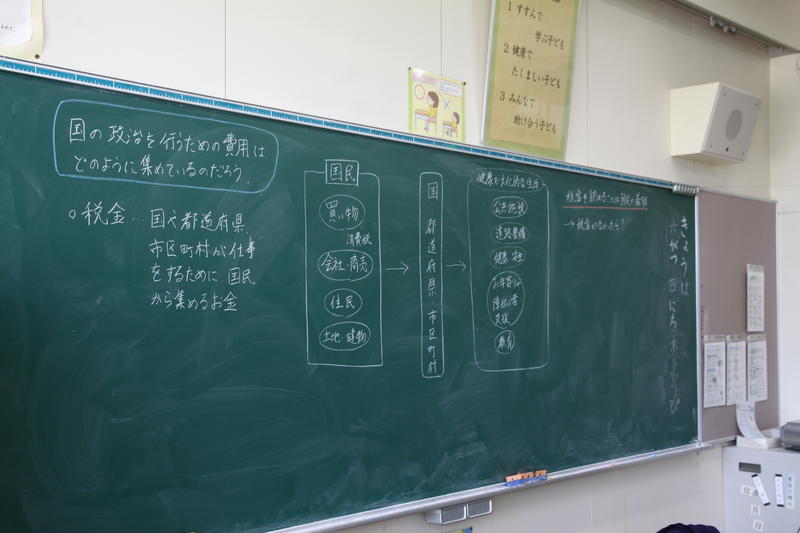 1 すすんで
学ぶ子ども
2 健康で
たくましい子ども
3 みんなで
助け合う子ども
国の政治を行うための費用は
どのように集めているのだろう。
○税金…国や都道府県、
市区町村が仕事
をするために、国民
から集めるお金
国民
買い物
消費税
会社・商売
住民
土地・建物
→
国 都道府県・市区町村
→
健康で文化的な生活
公共施設
道路整備
健康・福祉
お年寄りや
障がい者
支援
教育
税金を納めることは国民の義務
→税金がなかったら?
きょうは
六がつ 四にち 木ようび
月
日